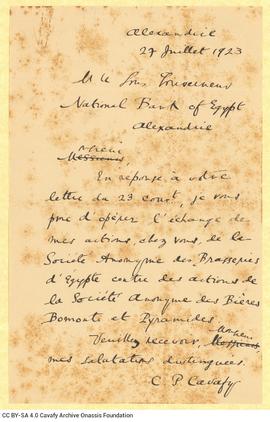 Alexandrie
27 Juillet 1923
M le Sous Gouverneur
National Bank of Egypt
Alexandrie
Monsieur
Messieurs,
En réponse à votre
lettre du 23 court, je vous
prie d'opérer l'échange de
mes actions, chez vous, de la
Société Anonyme des Brasseries
d'Egypte contre des actions de
la Société Anonyme des Bières
Bomonti et Pyramides.
Veuillez recevoir, Messieurs,
mes salutations distinguées.
C. P. Cavafy
CC BY-SA 4.0 Cavafy Archive Onassis Foundation